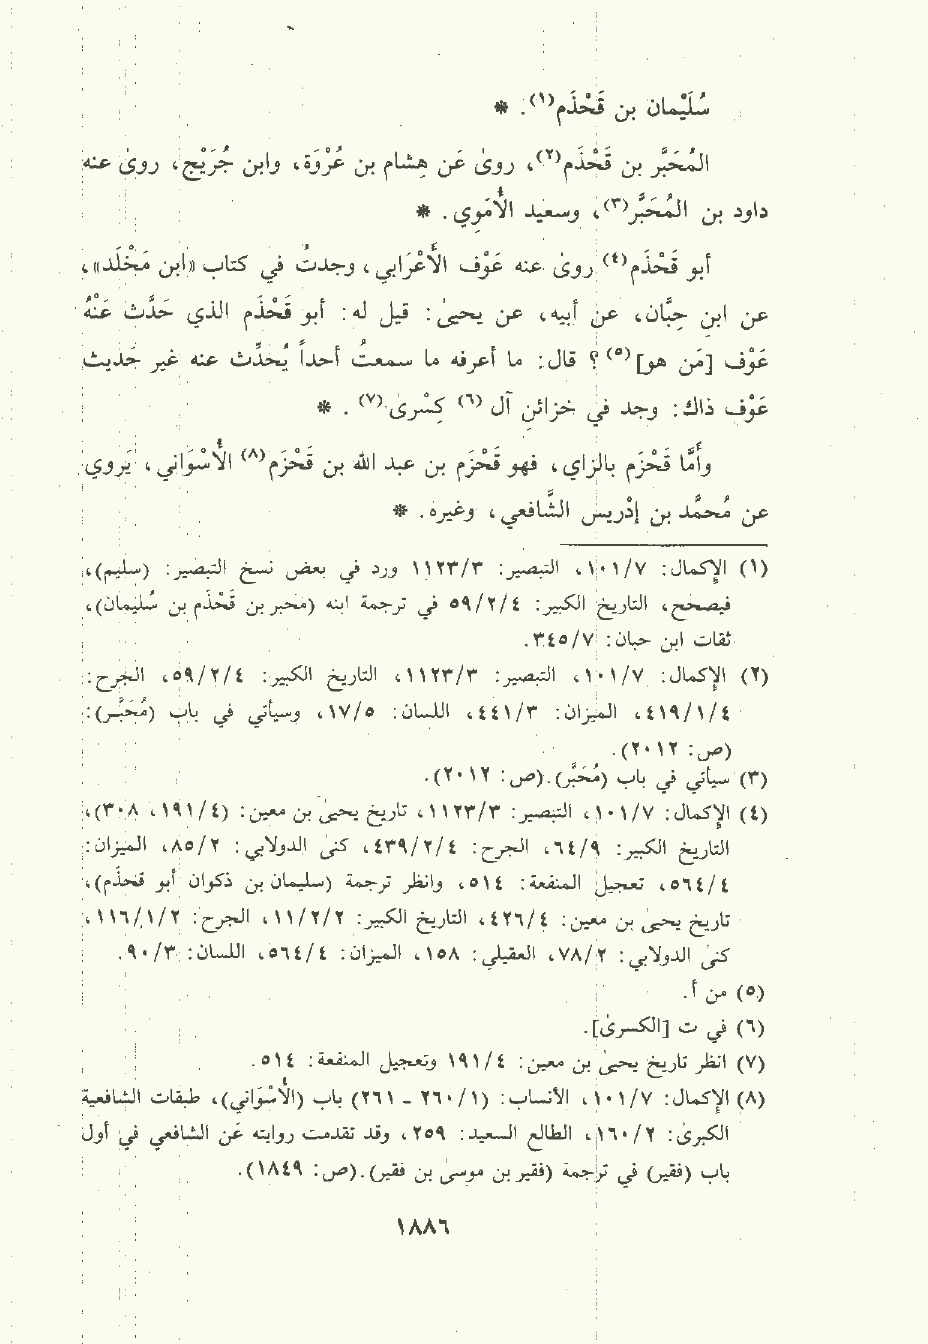 سُلَيْمان بن قَحْذَم(١). *
المُحَبَّر بن قَحْذَم(٢)، روىٰ عَن هِشام بن عُرْوَة، وابن جُرَيْج، روىٰ عنه
داود بن المُحَبَّر(٣)، وسعيد الأُمَوِي. *
أبو قَحْذَم(٤) روىٰ عنه عَوْف الأَعْرَابي، وجدتُ في كتاب «ابن مَخْلَد»،
عن ابن حِبَّان، عن أبيه، عن يحيىٰ: قيل له: أبو قَحْذَم الذي حَدَّث عَنْهُ
عَوْف [مَن هو](٥)؟ قال: ما أعرفه ما سمعتُ أحداً يُحدِّث عنه غير حَديث
عَوْف ذاك: وجد في خزائن آل (٦) كِسْرىٰ(٧). *
وأمَّا قَحْزَم بالزاي، فهو قَحْزَم بن عبد الله بن قَحْزَم(٨) الأُسْوَاني، يَروي
عن مُحمَّد بن إدْريس الشَّافعي، وغيره. *
(١) الإكمال: ١٠١/٧، التبصير: ١١٢٣/٣ ورد في بعض نسخ التبصير: (سليم)،
فيصحح، التاريخ الكبير: ٥٩/٢/٤ في ترجمة ابنه (محبر بن قَحْذَم بن سُليمان)،
ثقات ابن حبان: ٣٤٥/٧.
(٢) الإكمال: ١٠١/٧، التبصير: ١١٢٣/٣، التاريخ الكبير: ٥٩/٢/٤، الجرح:
٤١٩/١/٤، الميزان: ٤٤١/٣، اللسان: ١٧/٥، وسيأتي في باب (مُحَبَّر):
(ص: ٢٠١٢).
(٣) سيأتي في باب (مُحَبَّر).(ص: ٢٠١٢).
(٤) الإكمال: ١٠١/٧، التبصير: ١١٢٣/٣، تاريخ يحيىٰ بن معين: (١٩١/٤، ٣٠٨)،
التاريخ الكبير: ٦٤/٩، الجرح: ٤٣٩/٢/٤، كنى الدولابي: ٨٥/٢، الميزان:
٥٦٤/٤، تعجيل المنفعة: ٥١٤، وانظر ترجمة (سليمان بن ذكوان أبو قحذم)،
تاريخ يحيىٰ بن معين: ٤٢٦/٤، التاريخ الكبير: ١١/٢/٢، الجرح: ١١٦/١/٢،
كنىٰ الدولابي: ٧٨/٢، العقيلي: ١٥٨، الميزان: ٥٦٤/٤، اللسان: ٩٠/٣.
(٥) من أ.
(٦) في ت [الكسرىٰ].
(٧) انظر تاريخ يحيىٰ بن معين: ١٩١/٤ وتعجيل المنفعة: ٥١٤.
(٨) الإكمال: ١٠١/٧، الأنساب: (٢٦٠/١ ـ ٢٦١) باب (الأُسْوَاني)، طبقات الشافعية
الكبرىٰ: ١٦٠/٢، الطالع السعيد: ٢٥٩، وقد تقدمت روايته عَن الشافعي في أول
باب (فقير) في ترجمة (فقير بن موسىٰ بن فقير).(ص: ١٨٤٩).
١٨٨٦